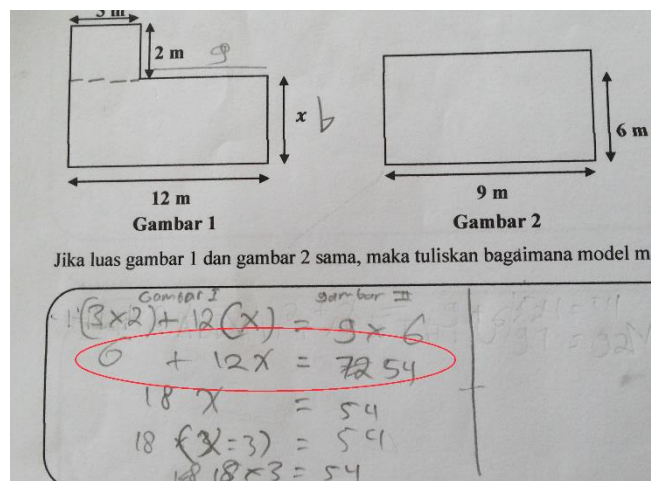 3 m
2 m
9
x b
6 m
12 m
9 m
Gambar 1
Gambar 2
Jika luas gambar 1 dan gambar 2 sama, maka tuliskan bagaimana model m
Gambar I
gambar II
(3×2)+ 12(x) = 9 × 6
6 + 12x = 72 54
18 x = 54
18 (x=3) = 54
18 18×3 = 54